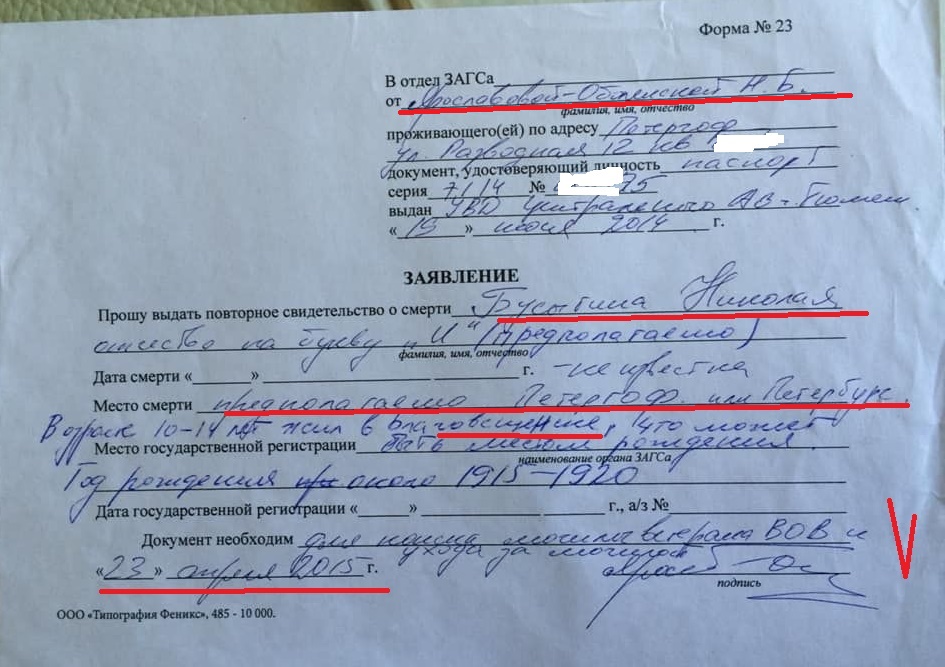 Форма № 23
В отдел ЗАГСа
от Ярославовой-Оболенской Н. Б.
фамилия, имя, отчество
проживающего(ей) по адресу Петергоф
ул. Разводная 12 кв
документ, удостоверяющий личность паспорт
серия 7114 № 25
выдан УВД Центрального АО г. Тюмени
«19» июня 2014 г.
ЗАЯВЛЕНИЕ
Прошу выдать повторное свидетельство о смерти Бустына Николая
отчество на букву „И" (предполагаемо)
фамилия, имя, отчество
Дата смерти « » г. - неизвестна
Место смерти предполагаемо Петергоф или Петербург.
Возраст 10-14 лет жил в Благовещенске, что может
Место государственной регистрации быть местом рождения.
наименование органа ЗАГСа
Год рождения около 1915-1920
Дата государственной регистрации « » г., а/з №
Документ необходим для поиска могилы ветерана ВОВ и
ухода за могилой
«23» апреля 2015 г.
подпись
ООО «Типография Феникс», 485 - 10 000.